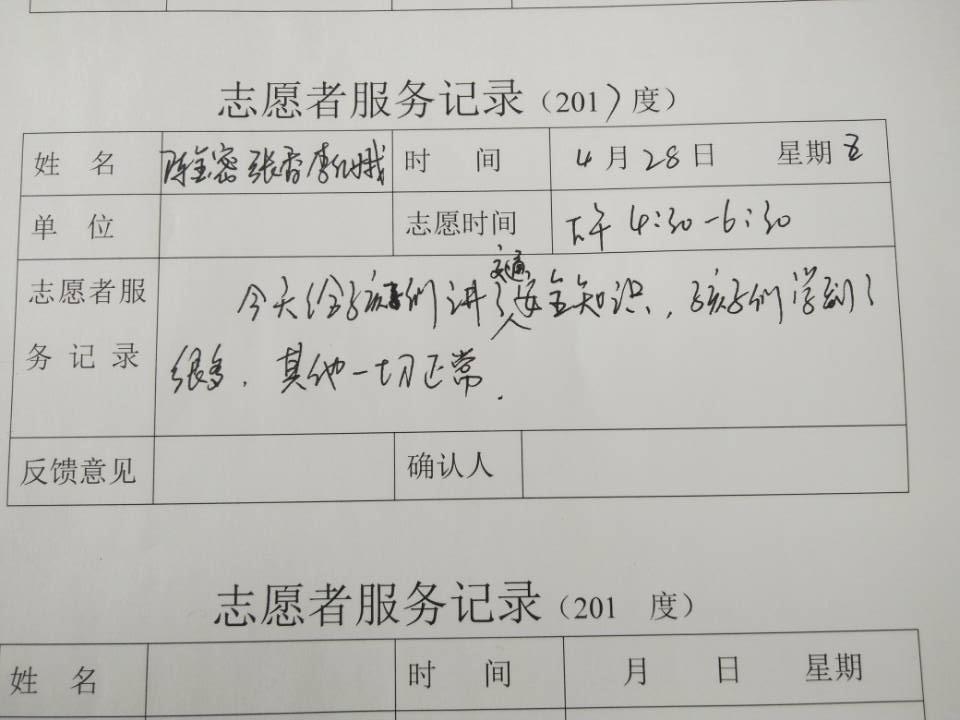 志愿者服务记录（2017度）
姓 名 陈金密 张香 李化娥 时 间 4月28日 星期五
单 位 志愿时间 下午4:30-6:30
志愿者服务记录
今天给孩子们讲了交通安全知识，孩子们学到了
很多，其他一切正常.
反馈意见 确认人
志愿者服务记录（201 度）
姓 名 时 间 月 日 星期